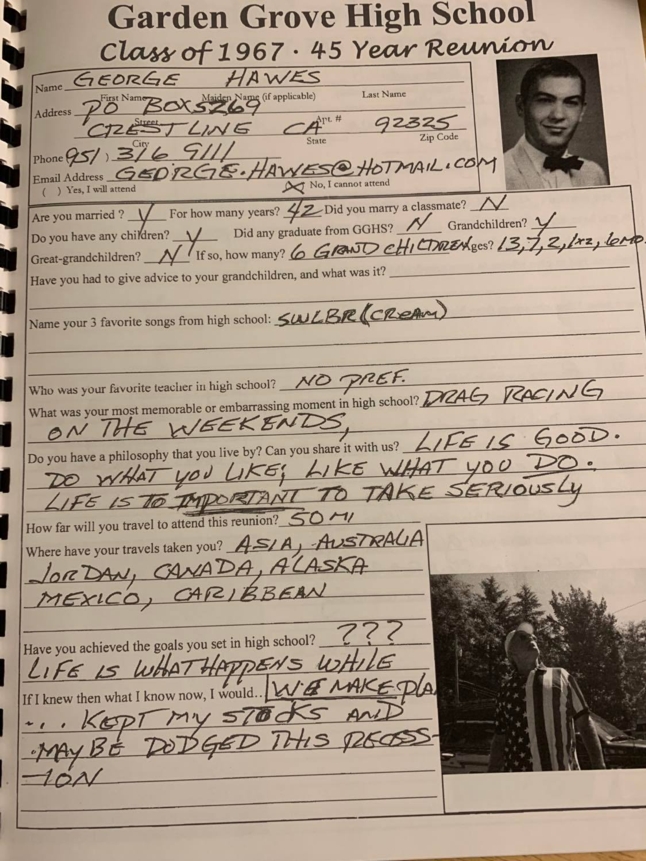 Garden Grove High School
Class of 1967 · 45 Year Reunion
Name GEORGE HAWES
First Name Maiden Name (if applicable) Last Name
Address PO BOX 5269
Street Apt. #
CRESTLINE CA 92325
City State Zip Code
Phone (951) 316 9111
Email Address GEORGE.HAWES@HOTMAIL.COM
( ) Yes, I will attend (X) No, I cannot attend
Are you married ? Y For how many years? 42 Did you marry a classmate? N
Do you have any children? Y Did any graduate from GGHS? N Grandchildren? Y
Great-grandchildren? N If so, how many? 6 GRAND CHILDREN Ages? 13, 7, 2, 1x2, 6 MO.
Have you had to give advice to your grandchildren, and what was it?
Name your 3 favorite songs from high school: SWLBR (CREAM)
Who was your favorite teacher in high school? NO PREF.
What was your most memorable or embarrassing moment in high school? DRAG RACING
ON THE WEEKENDS,
Do you have a philosophy that you live by? Can you share it with us? LIFE IS GOOD.
DO WHAT YOU LIKE; LIKE WHAT YOU DO.
LIFE IS TO IMPORTANT TO TAKE SERIOUSLY
How far will you travel to attend this reunion? 50 MI
Where have your travels taken you? ASIA, AUSTRALIA
JORDAN, CANADA, ALASKA
MEXICO, CARIBBEAN
Have you achieved the goals you set in high school? ???
LIFE IS WHAT HAPPENS WHILE
If I knew then what I know now, I would.. WE MAKE PLA
... KEPT MY STOCKS AND
MAYBE DODGED THIS RECESS-
ION